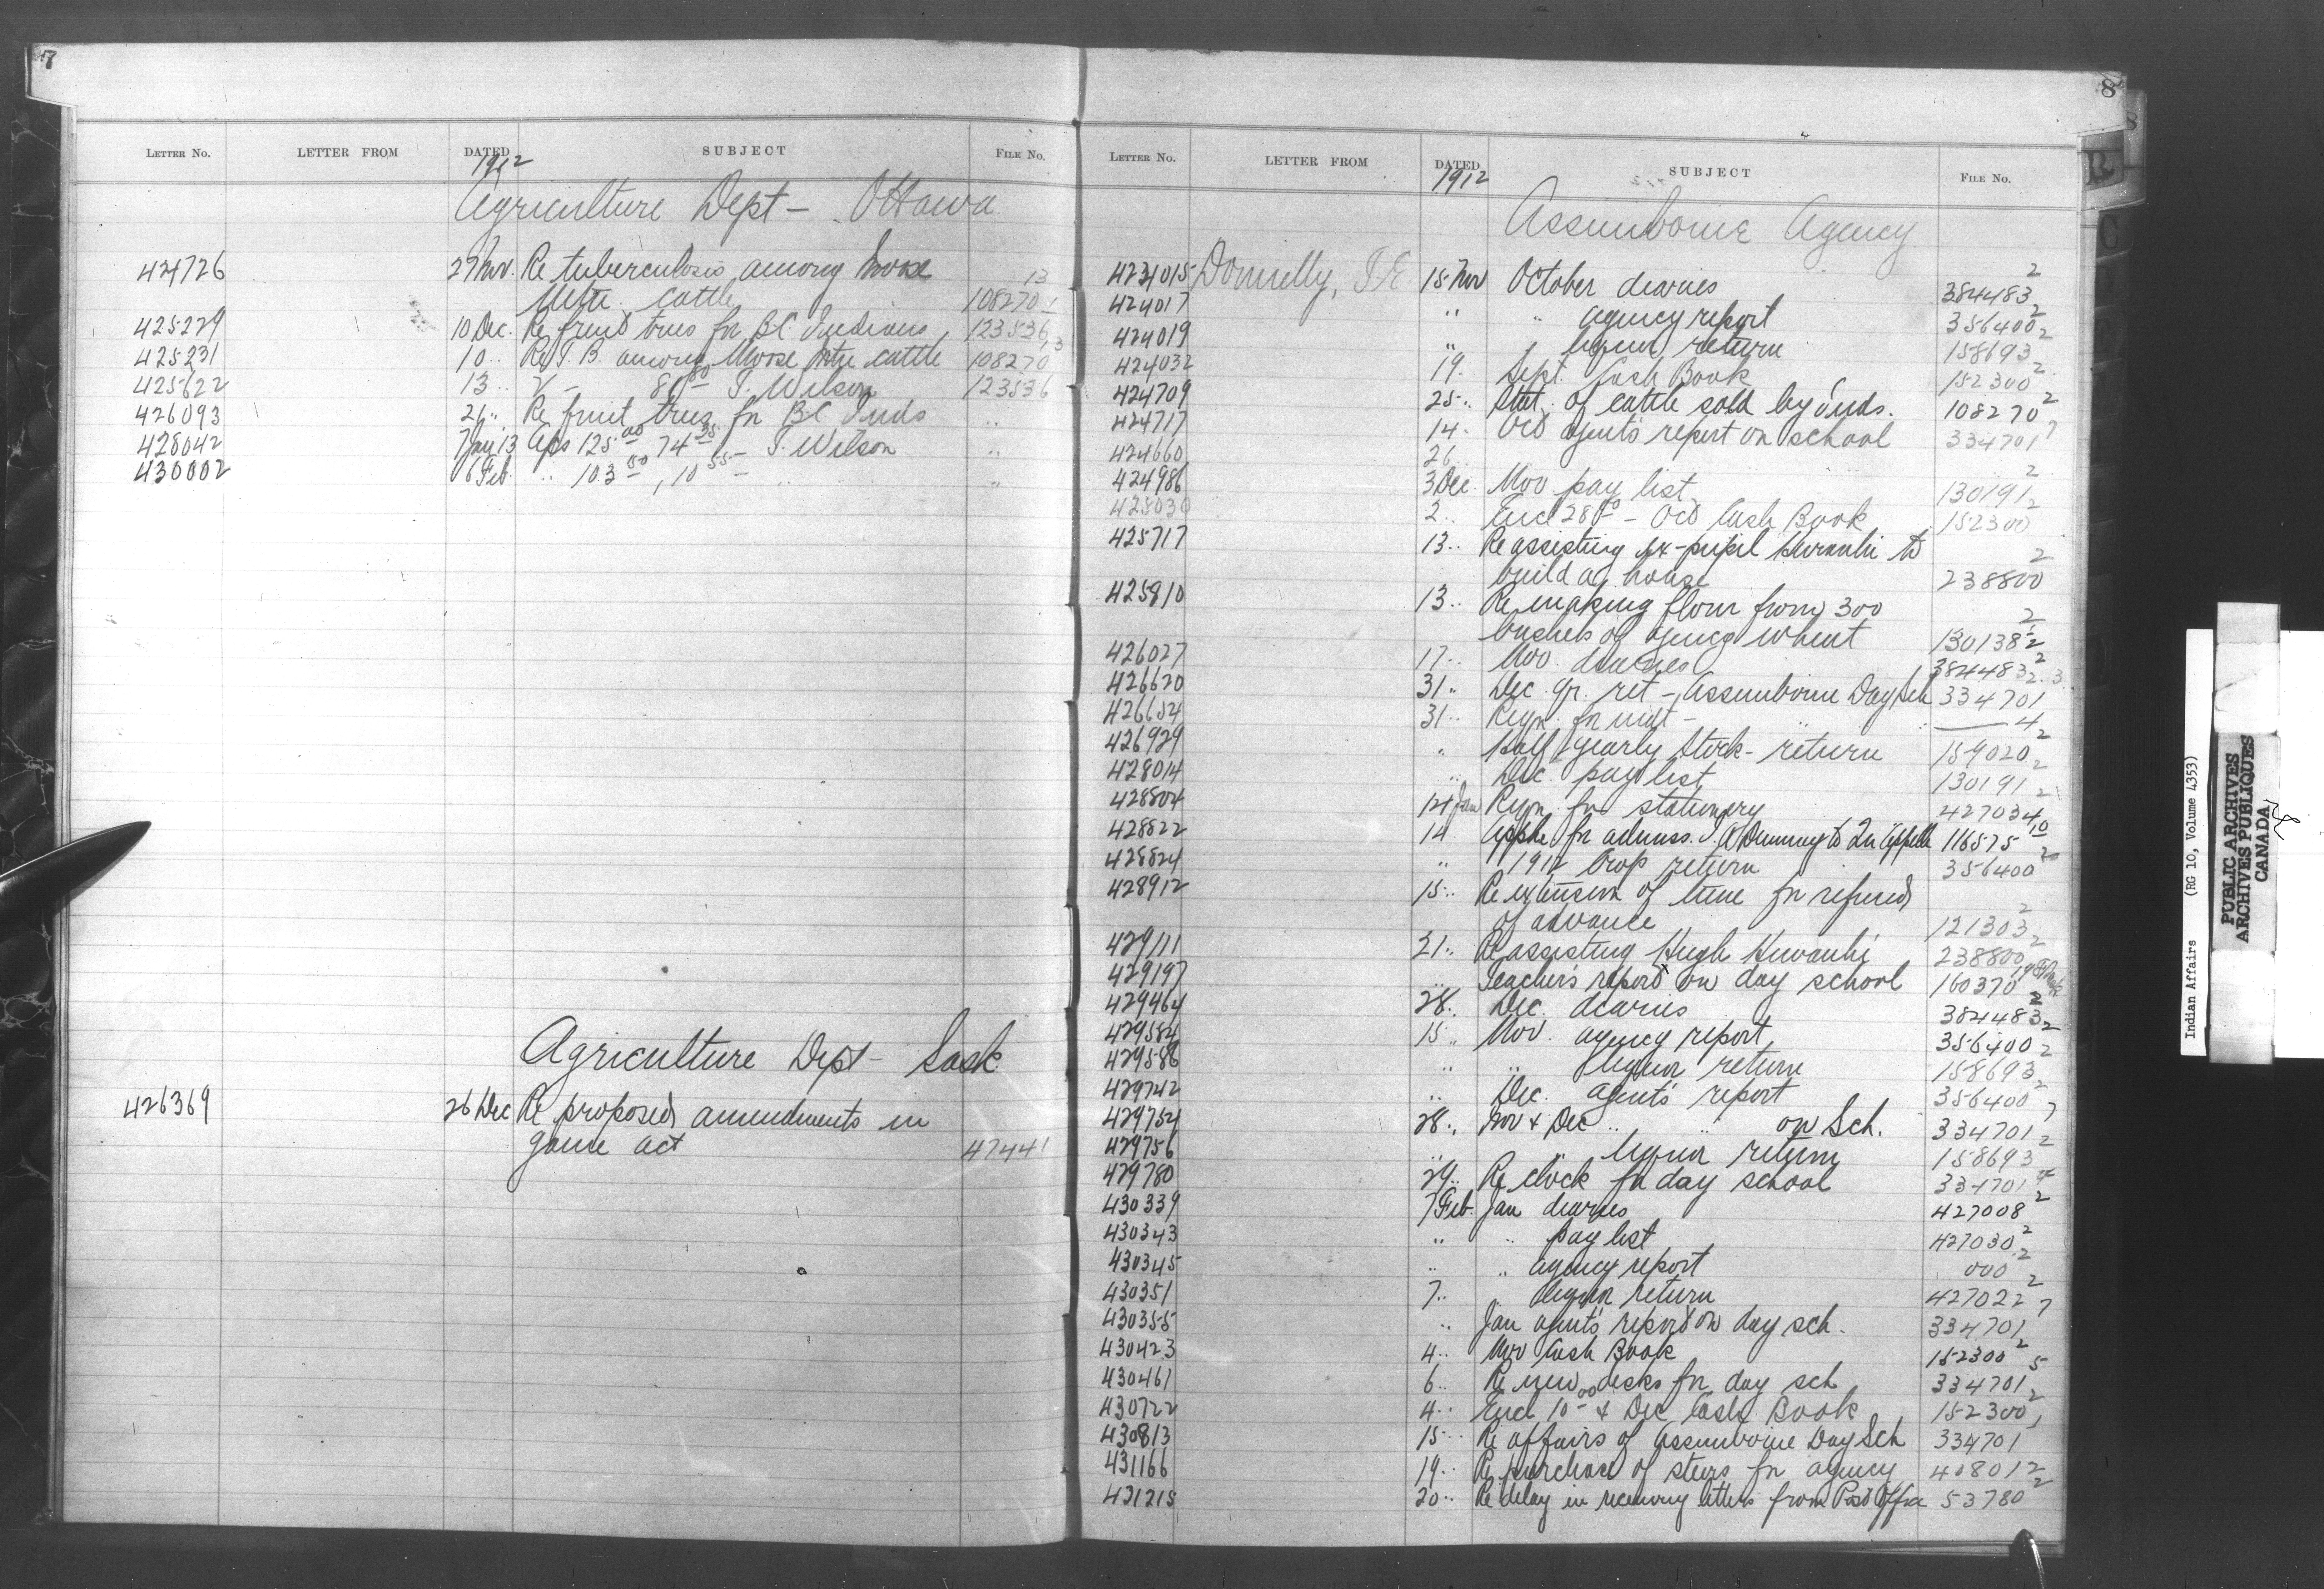 7
LETTER NO. LETTER FROM DATED SUBJECT FILE NO.
1912
Agriculture Dept - Ottawa
424726 27 Nov. Re tuberculosis among Moose 13
Mtn. cattle 108270-1
425229 10 Dec. Re fruit trees for B.C. Indians 123536
425231 10 .. Re T.B. among Moose Mtn cattle 108270 13
425622 13 .. V - 86 80 T. Wilson 123536
426093 26 .. Re fruit trees for B.C. Inds ..
428042 7 Jan '13 Aps 125 00 74 35 - T. Wilson ..
430002 6 Feb. .. 103 50, 10 55 - .. ..
Agriculture Dept - Sask
426369 26 Dec Re proposed amendments in
game act 47441
8
LETTER NO. LETTER FROM DATED SUBJECT FILE NO.
1912
Assiniboine Agency
424015 Donnelly, T.E 15 Nov October diaries 384483 2
424017 .. .. agency report 356400 2
424019 .. .. liquor return 158693 2
424032 19. Sept. Cash Book 152300 2
424709 25 .. Stat. of cattle sold by inds. 108270 2
424717 14 .. Oct agent's report on school 334701 7
424660 26 ..
424986 3 Dec. Nov pay list 130191 2
425030 2 .. Encl 28 - Oct Cash Book 152300 2
425717 13 .. Re assisting ex-pupil to
build a house 238800 2
425810 13 .. Re making flour from 300
bushels of agency wheat 130138-2
426027 17 .. Nov. diaries 384483 2
426620 31 .. Dec. qr. ret - Assiniboine Day Sch 334701 2.3
426654 31 .. Reqn. for - .. 4
426929 .. Half yearly stock-return 159020 2
428014 .. Dec. pay list 130191 2
428504 14 Jan Reqn. for stationery 427034 2
428822 14 Appln for admiss. to Qu'Appelle 116575 10
428824 .. 1912 Crop return 356400 2
428912 15 .. Re extension of time for refund
of advance 121303 2
429111 21 .. Re assisting Hugh 238800 2
429197 .. Teacher's report on day school 160370
429464 28 .. Dec. diaries 384483 2
429584 15 .. Nov. agency report 356400 2
429586 .. .. liquor return 158693 2
429742 .. Dec. agent's report 356400 2
429754 28 .. Nov & Dec .. .. on Sch. 334701 7
429756 .. .. liquor return 158693 2
429780 29 .. Re clock for day school 334701 4
430339 7 Feb. Jan diaries 427008 2
430343 .. .. pay list 427030 2
430345 .. .. agency report 000 2
430351 7 .. .. liquor return 427022 2
430355 .. Jan agent's report on day sch. 334701 7
430423 4 .. Nov Cash Book 152300 2
430461 6 .. Re new desks for day sch 334701 5
430722 4 .. Encl 10 00 & Dec Cash Book 152300 2
430813 15 .. Re affairs of Assiniboine Day Sch 334701 1
431166 19 .. Re purchase of steers for agency 408012
431215 20 .. Re delay in receiving letters from Post Office 53780 2
B
C
Indian Affairs (RG 10, Volume 4353)
PUBLIC ARCHIVES
ARCHIVES PUBLIQUES
CANADA